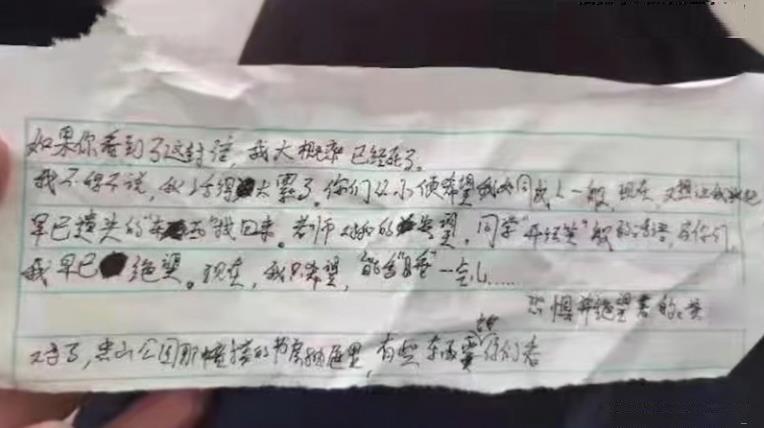 如果你看到了这封信，我大概率已经死了。
我不得不说，我活得太累了。你们从小便希望我如同成人一般，现在又想让我把
早已摸失的“东西”找回来。老师对我的失望，同学“开玩笑”般的话语，与你们，
我早已绝望。现在，我只希望，能去“睡”一会儿……
恐惧并绝望着的
对了，公园那幢楼的书房抽屉里，有些东西需你们看